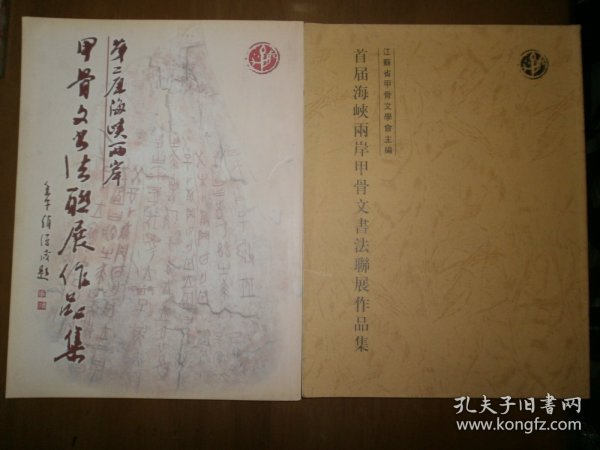 第二届海峡两岸
甲骨文书法联展作品集
江蘇省甲骨文學會主編
首届海峽兩岸甲骨文書法聯展作品集
孔夫子旧书网
www.kongfz.com